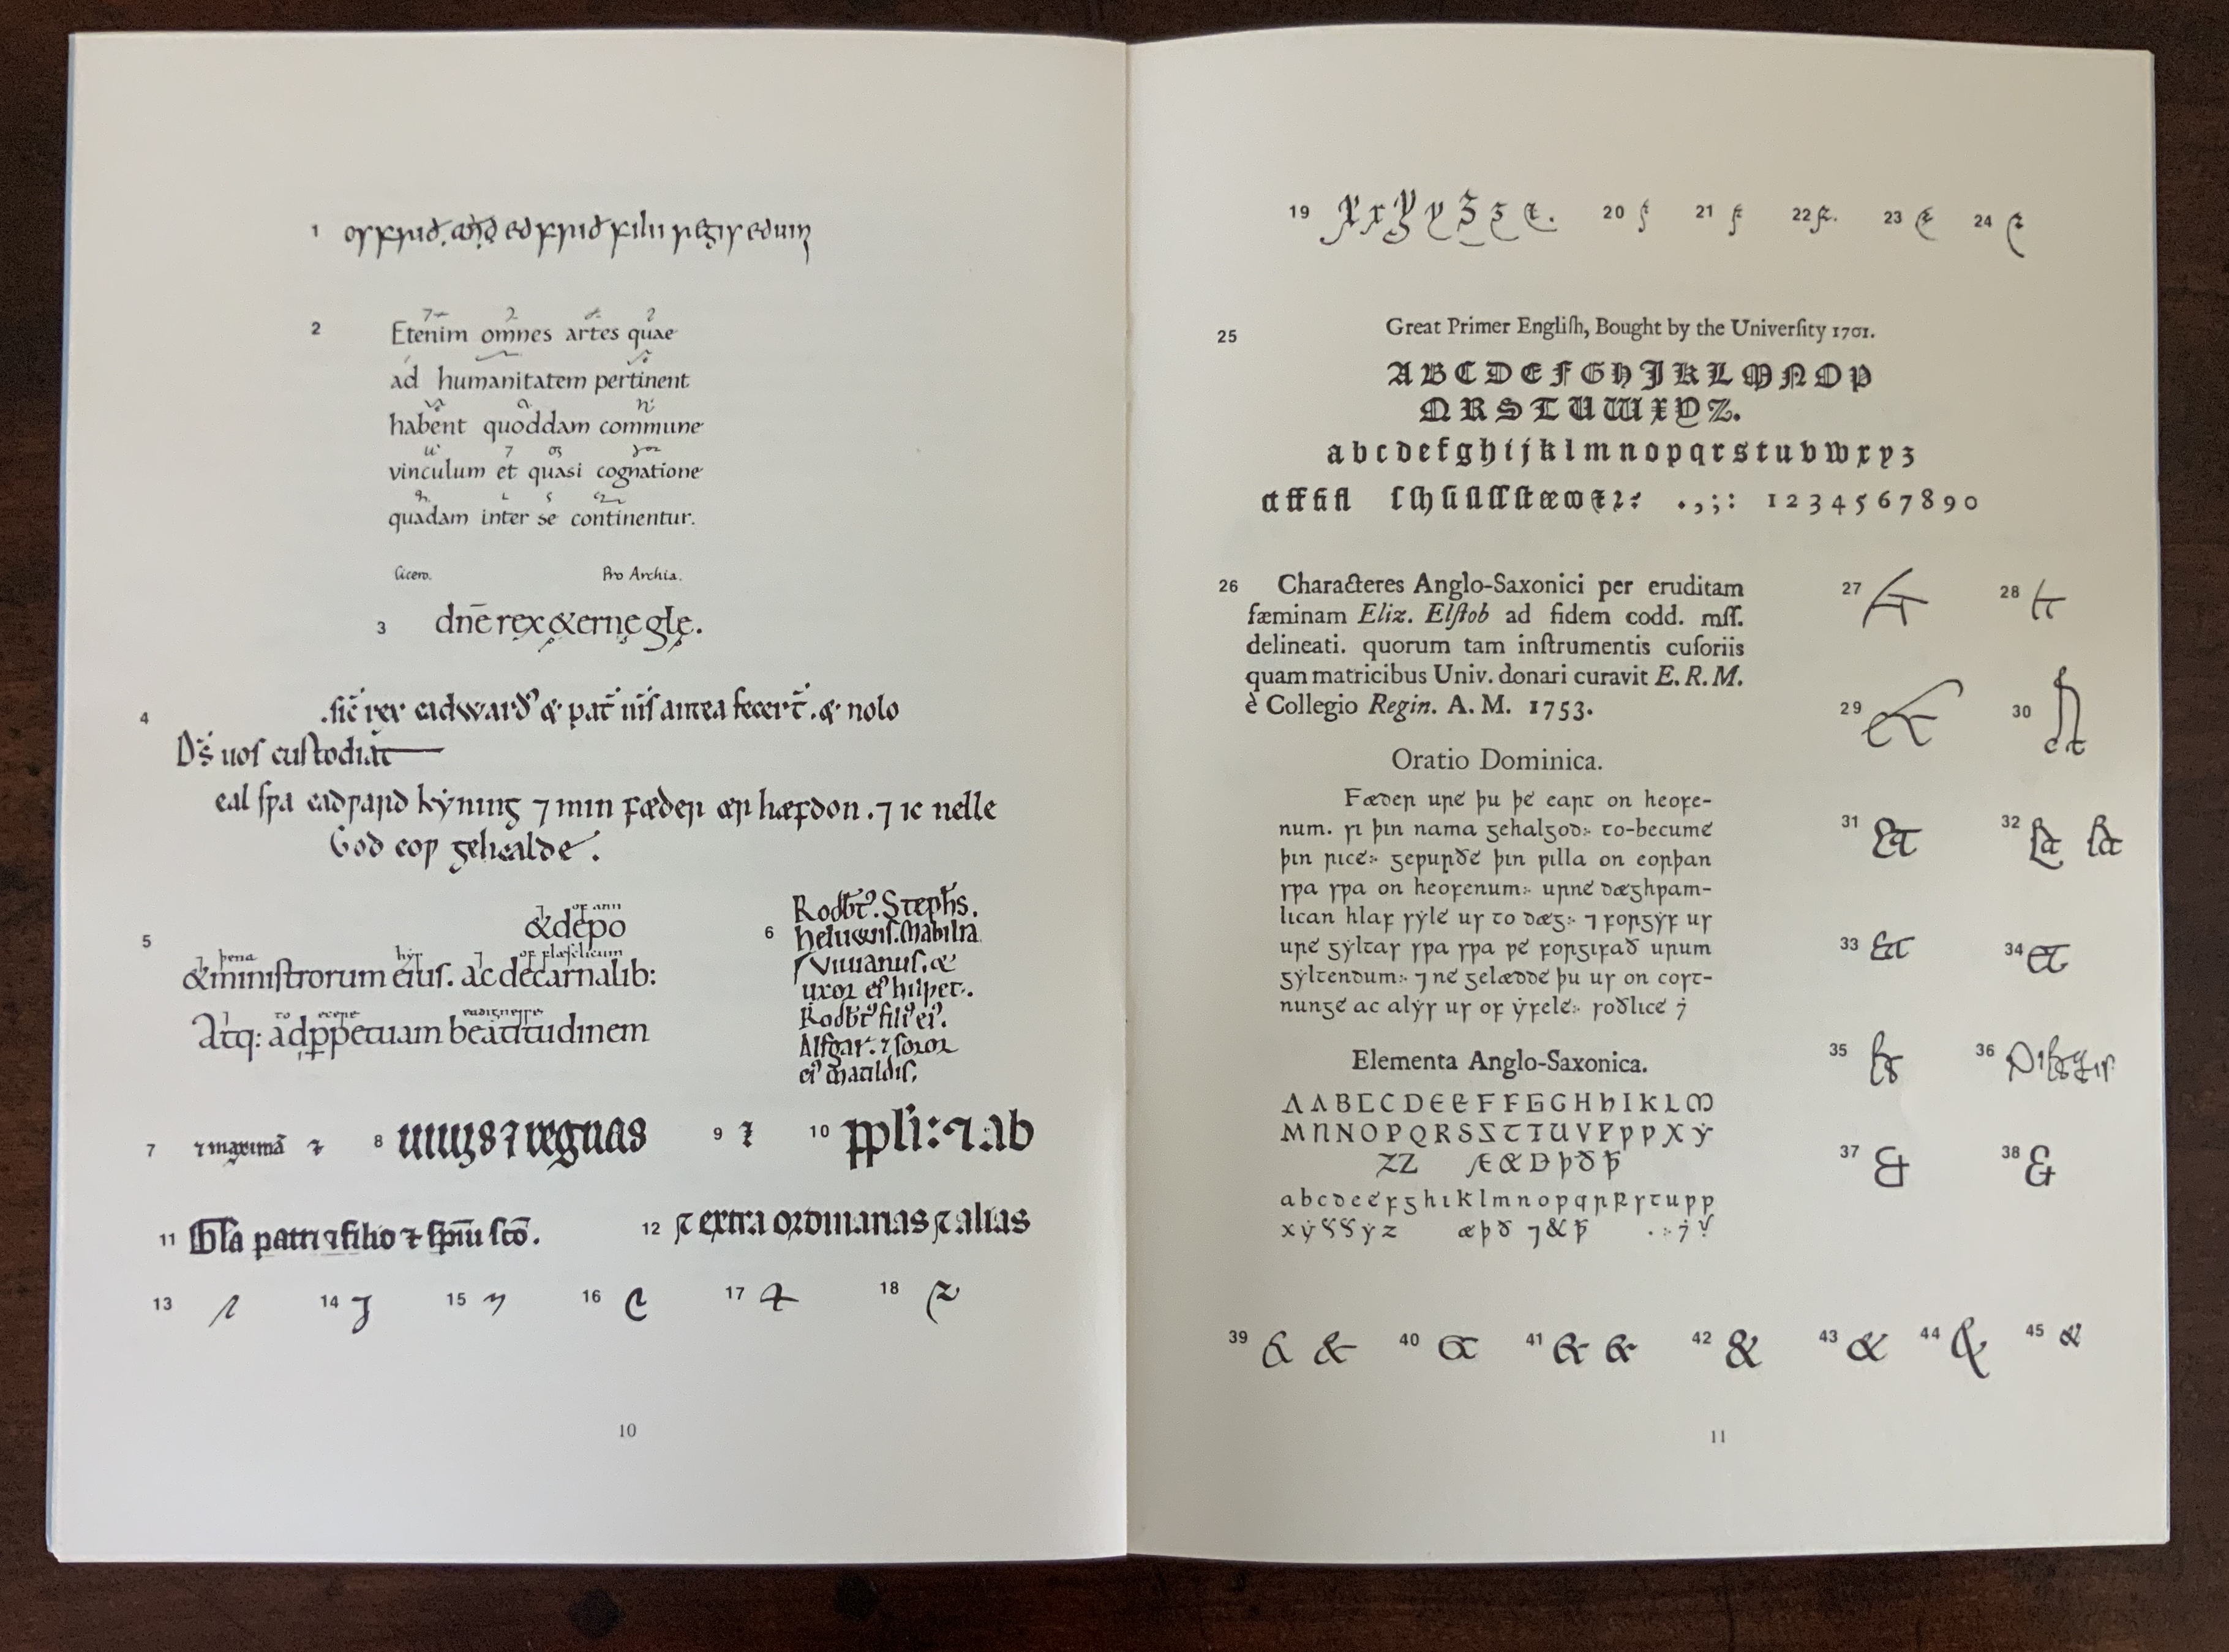 1 osfrid. and edfrid filii regis eduin
2 Etenim omnes artes quae
ad humanitatem pertinent
habent quoddam commune
vinculum et quasi cognatione
quadam inter se continentur.
Cicero. Pro Archia.
3 dnē rex &ernę glę.
4 .sic rex eadward' & pat uīs antea fecert. & nolo
Ds uos custodiat
eal ſƿa eadƿard kẏning ⁊ min fæder ær hæfdon. ⁊ ic nelle
God eoƿ gehealde.
of ann
5 &depo
þena hẏr of flæsclicum
&miniſtrorum eiuſ. ac decarnalib:
to ecere eadignesse
Atq: adꝑpetuam beatitudinem
6 Rodbt'. Stephs.
heluuis. Mabilia
Viuianuſ. &
uxor ei' hilpet.
Rodbt' fili' ei'.
Alfgar. ⁊ soror
ei' Matildiſ.
7 ⁊ maximā ⁊
8 ⁊ regnas
9 ⁊
10 ꝑpli: ⁊ ab
11 Gl̄a patri ⁊ filio ⁊ ſp̄iu ſcō.
12 ⁊ extra ordinarias ⁊ alias
13 14 15 16 17 18
10
19 20 21 22 23 24
25 Great Primer Engliſh, Bought by the Univerſity 1701.
A B C D E F G H J K L M N O P
Q R S T U W X Y Z.
a b c d e f g h i j k l m n o p q r s t u v w x y z
ct ff fi fl ſ ſh ſi ſl ſſ ſt æ œ ⁊ ꝛ : . , ; : 1 2 3 4 5 6 7 8 9 0
26 Characteres Anglo-Saxonici per eruditam
fæminam Eliz. Elſtob ad fidem codd. mſſ.
delineati. quorum tam inſtrumentis cuſoriis
quam matricibus Univ. donari curavit E. R. M.
è Collegio Regin. A. M. 1753.
Oratio Dominica.
Fæder ure þu þe eart on heofe-
num. si þin nama gehalgod: to-becume
þin rice: geƿurðe þin ƿilla on eorþan
sƿa sƿa on heofenum: urne dæghƿam-
lican hlaf sẏle us to dæg: ⁊ forgẏf us
ure gẏltas sƿa sƿa ƿe forgifað urum
gẏltendum: ⁊ ne gelædde þu us on cost-
nunge ac alẏs us of ẏfele: soðlice
Elementa Anglo-Saxonica.
A A B C C D E E F F G G H h I K L M
M N N O P Q R S S T T U V F Ƿ Ƿ X Ẏ
Z Z Æ & Ð Þ ð ꝥ
a b c d e e f g h i k l m n o p q r R s t u ƿ p
x ẏ ẏ z æ þ ð ⁊ & ꝥ
27 28
29 30
31 32
33 & 34 &
35 36
37 & 38 &
39 & & 40 & 41 & & 42 & 43 & 44 & 45 &
11